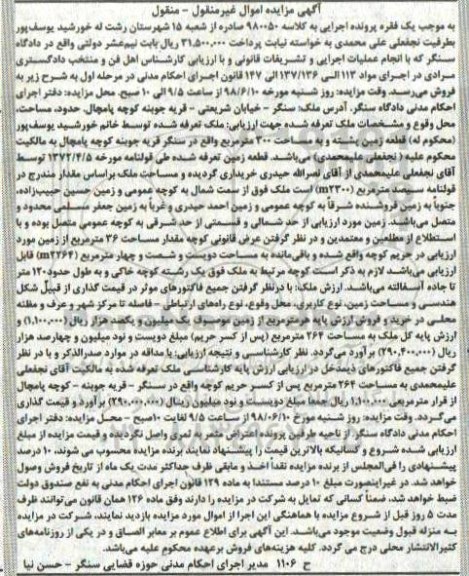 آگهی مزایده اموال غیرمنقول - منقول
به موجب یک فقره پرونده اجرایی به کلاسه 980050 صادره از شعبه 15 شهرستان رشت له خورشید یوسف‌پور
بطرفیت نجفعلی علی محمدی به خواسته نیابت پرداخت 31,500,000 ریال بابت نیم‌عشر دولتی واقع در دادگاه
سنگر که با انجام عملیات اجرایی و تشریفات قانونی و با ارزیابی کارشناس اهل فن و منتخب دادگستری
مرادی در اجرای مواد 113 الی 137/136 الی 147 قانون اجرای احکام مدنی در مرحله اول به شرح زیر به
فروش می‌رسد. وقت مزایده: روز شنبه مورخه 98/6/10 از ساعت 9/5 الی 10 صبح. محل مزایده: دفتر اجرای
احکام مدنی دادگاه سنگر. آدرس ملک: سنگر - خیابان شریعتی - قریه جوبنه کوچه پامچال. حدود، مساحت،
محل وقوع و مشخصات ملک تعرفه شده جهت ارزیابی: ملک تعرفه شده توسط خانم خورشید یوسف‌پور
(محکوم له) قطعه زمین پشته و به مساحت 300 مترمربع واقع در سنگر قریه جوبنه کوچه پامچال به مالکیت
محکوم علیه (نجفعلی علیمحمدی) می‌باشد. قطعه زمین تعرفه شده طی قولنامه مورخه 1372/4/5 توسط
آقای نجفعلی علیمحمدی از آقای نصرالله حیدری خریداری گردیده و مساحت ملک براساس مقدار مندرج در
قولنامه سیصد مترمربع (m2300) است ملک فوق از سمت شمال به کوچه عمومی و زمین حسین حبیب‌زاده،
جنوبا به زمین فروشنده شرقاً به کوچه عمومی و زمین احمد حیدری و غرباً به زمین جعفر سلمی محدود و
متصل می‌باشد. زمین مورد ارزیابی از حد شمالی و قسمتی از حد شرقی به کوچه عمومی متصل بوده و با
استطلاع از مطلعین و معتمدین و در نظر گرفتن عرض قانونی کوچه مقدار مساحت 36 مترمربع از زمین مورد
ارزیابی در حریم کوچه واقع شده و باقی‌مانده به مساحت دویست و شصت و چهار مترمربع (m2264) قابل
ارزیابی می‌باشد لازم به ذکر است کوچه مرتبط به ملک فوق یک رشته کوچه خاکی و به طول حدود 120 متر
تا جاده آسفالته می‌باشد. ارزش ملک: با درنظر گرفتن جمیع فاکتورهای موثر در قیمت گذاری از قبیل شکل
هندسی و مساحت زمین، نوع کاربری، محل وقوع، نوع راه‌های ارتباطی - فاصله تا مرکز شهر و عرف و مظنه
محلی در خرید و فروش ارزش پایه هرمترمربع از زمین موصوف یک میلیون و یکصد هزار ریال (1,100,000) و
ارزش پایه کل ملک به مساحت 264 مترمربع (پس از کسر حریم) مبلغ دویست و نود میلیون و چهارصد هزار
ریال (290,400,000) برآورد می‌گردد. نظر کارشناسی و نتیجه ارزیابی: با مداقه در موارد صدرالذکر و با در نظر
گرفتن جمیع فاکتورهای ذیمدخل در ارزیابی ارزش پایه کارشناسی ملک تعرفه شده به مالکیت آقای نجفعلی
علیمحمدی به مساحت 264 مترمربع پس از کسر حریم کوچه واقع در سنگر - قریه جوبنه - کوچه پامچال
از قرار مترمربعی 1,100,000 ریال جمعا مبلغ دویست و نود میلیون ریال (290,000,000) برآورد و قیمت گذاری
می‌گردد. وقت مزایده: روز شنبه مورخ 98/06/10 از ساعت 9/5 لغایت 10 صبح - محل مزایده: دفتر اجرای
احکام مدنی دادگاه سنگر از ناحیه طرفین پرونده اعتراض مثمر به ثمری واصل نگردیده و قیمت مزایده از مبلغ
ارزیابی شده شروع و کسانیکه بالاترین قیمت را پیشنهاد نمایند برنده مزایده محسوب می شوند، 10 درصد
پیشنهادی را فی‌المجلس از برنده مزایده نقداً اخذ و مابقی ظرف حداکثر مدت یک ماه از تاریخ فروش وصول
خواهد شد. در غیراینصورت مبلغ 10 درصد مستندا به ماده 129 قانون اجرای احکام مدنی به نفع صندوق دولت
ضبط خواهد شد، ضمناً کسانی که تمایل به شرکت در مزایده را دارند وفق ماده 126 همان قانون می‌توانند ظرف
مدت 5 روز قبل از شروع مزایده با هماهنگی این اجرا از اموال مورد مزایده بازدید نمایند، شرکت در مزایده
به منزله قبول وضعیت موجود می‌باشد. این آگهی برای اطلاع عموم بر معابر الصاق و در یکی از روزنامه‌های
کثیرالانتشار محلی درج می گردد. کلیه هزینه‌های فروش برعهده محکوم علیه می‌باشد.
ح 1106 مدیر اجرای احکام مدنی حوزه قضایی سنگر - حسن نیا